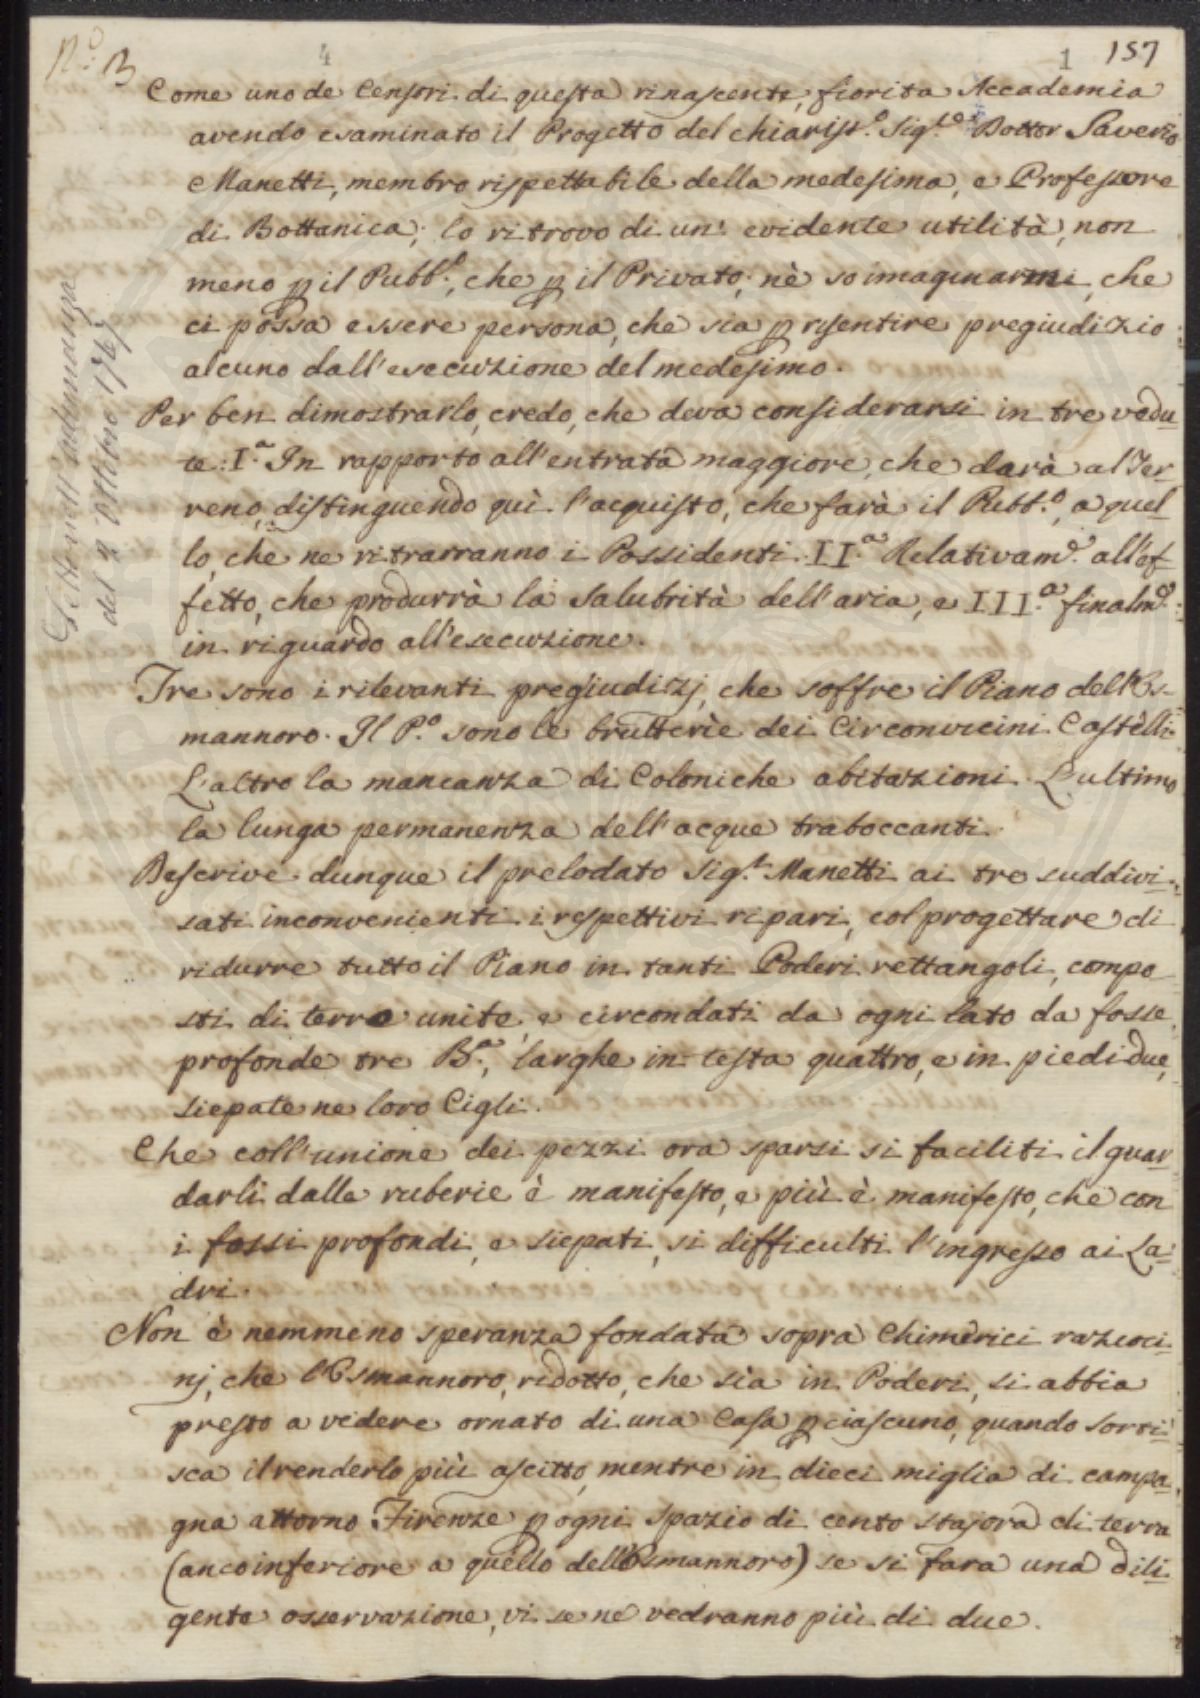 N.º 3
4
1
157
Come uno de Censori di questa rinascente, fiorita Accademia
avendo esaminato il Progetto del chiariss.º Sig.re Dottor Saverio
Manetti, membro rispettabile della medesima, e Professore
di Bottanica; lo ritrovo di un' evidente utilità, non
meno p il Pubb.º, che p il Privato; nè so imaginarmi, che
ci possa essere persona, che sia p risentire pregiudizio
alcuno dall'esecuzione del medesimo.
Per ben dimostrarlo, credo, che deva considerarsi in tre vedu-
te: I.ª In rapporto all'entrata maggiore, che darà al Ter-
reno, distinguendo quì l'acquisto, che farà il Pubb.º, a quel-
lo, che ne ritrarranno i Possidenti. II.ª Relativam.e all'ef-
fetto, che produrrà la salubrità dell'aria, e III.ª finalm.e
in riguardo all'esecuzione.
Tre sono i rilevanti pregiudizj, che soffre il Piano dell'Os-
mannoro. Il P.º sono le brutterìe dei Circonvicini Castelli.
L'altro la mancanza di Coloniche abitazioni. L'ultimo
la lunga permanenza dell'acque traboccanti.
Descrive dunque il prelodato Sig.r Manetti ai tre suddivi-
sati inconvenienti i respettivi ripari, col progettare di
ridurre tutto il Piano in tanti Poderi rettangoli, compo-
sti di terre unite, e circondati da ogni lato da fosse
profonde tre B.a, larghe in testa quattro, e in piedi due,
siepate ne loro Cigli.
Che coll'unione dei pezzi ora sparsi si faciliti il guar-
darli dalle ruberie è manifesto, e più è manifesto, che con
i fossi profondi, e siepati, si difficulti l'ingresso ai La-
dri.
Non è nemmeno speranza fondata sopra Chimerici razioci-
nj, che l'Osmannoro, ridotto, che sia in Poderi, si abbia
presto a vedere ornato di una Casa p ciascuno, quando sorti-
sca il renderlo più ascitto, mentre in dieci miglia di campa-
gna attorno Firenze p ogni spazio di cento stajora di terra
(anco inferiore a quello dell'Osmannoro) se si farà una dili-
gente osservazione, vi se ne vedranno più di due.
Letto nell'adunanza
del 4 Ottobre 1767